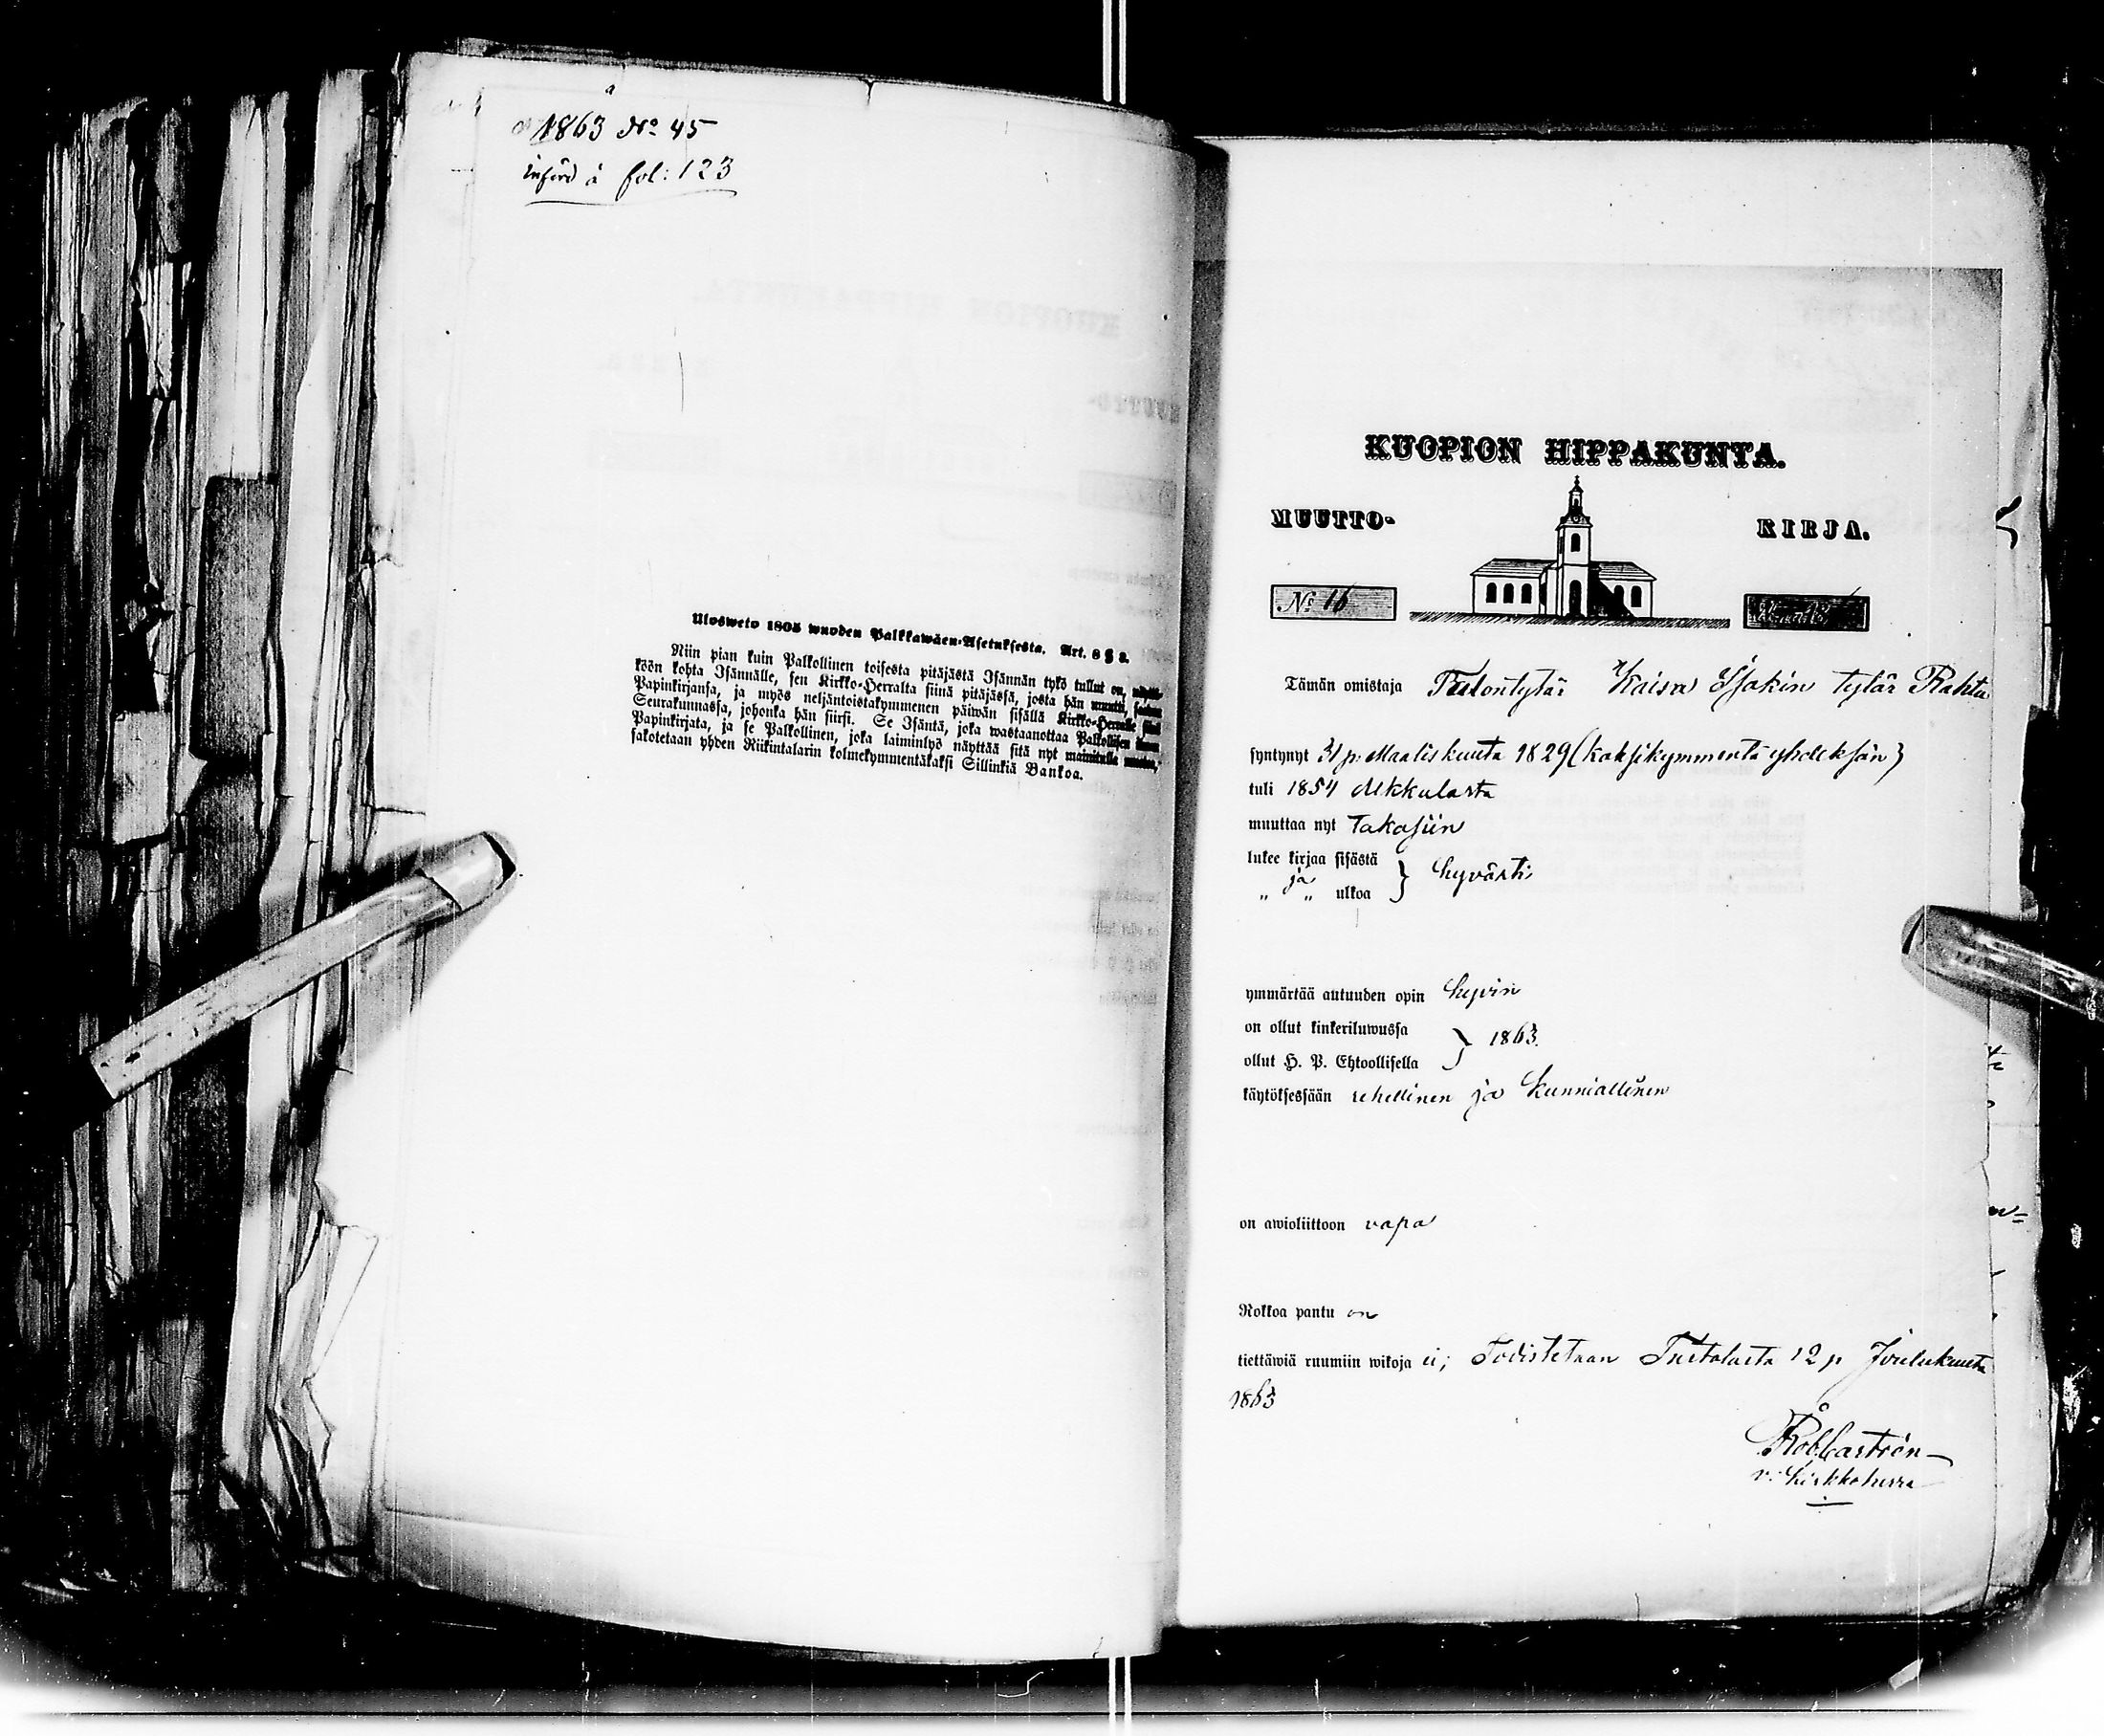 1863 No 45
införd å fol: 123
Ulosweto 1805 wuoden Palkkawäen-Asetuksesta. Art. 8 § 8.
Niin pian kuin Palkollinen toisesta pitäjästä Isännän tykö tullut on,
köön kohta Isännälle, sen Kirkko-Herralta siinä pitäjässä, josta hän muutti, saadun
Papinkirjansa, ja myös neljäntoistakymmenen päiwän sisällä Kirkko-Herralle siinä
Seurakunnassa, johonka hän siirsi. Se Isäntä, joka wastaanottaa Palkollisen ilman
Papinkirjata, ja se Palkollinen, joka laiminlyö näyttää sitä nyt mainitulle
sakotetaan yhden Riikintalarin kolmekymmentäkaksi Sillinkiä Bankoa.
KUOPION HIPPAKUNTA.
MUUTTO- KIRJA.
No 16
Tämän omistaja Talontytär Kaisa Isakin tytär Rahtu
syntynyt 31 p. Maaliskuuta 1829 (kaksikymmentä yhdeksän)
tuli 1854 Mekkulasta
muuttaa nyt Takasiin
lukee kirjaa sisästä } hyvästi
„ ja „ ulkoa
ymmärtää autuuden opin hyvin
on ollut kinkeriluwussa } 1863.
ollut H. P. Ehtoollisella
käytöksessään rehellinen ja kunniallinen
on awioliittoon vapa
Rokkoa pantu on
tiettäwiä ruumiin wikoja ei; Todistetaan 12 p Joulukuuta
1863
Rob. Castrén
v. kirkkoherra